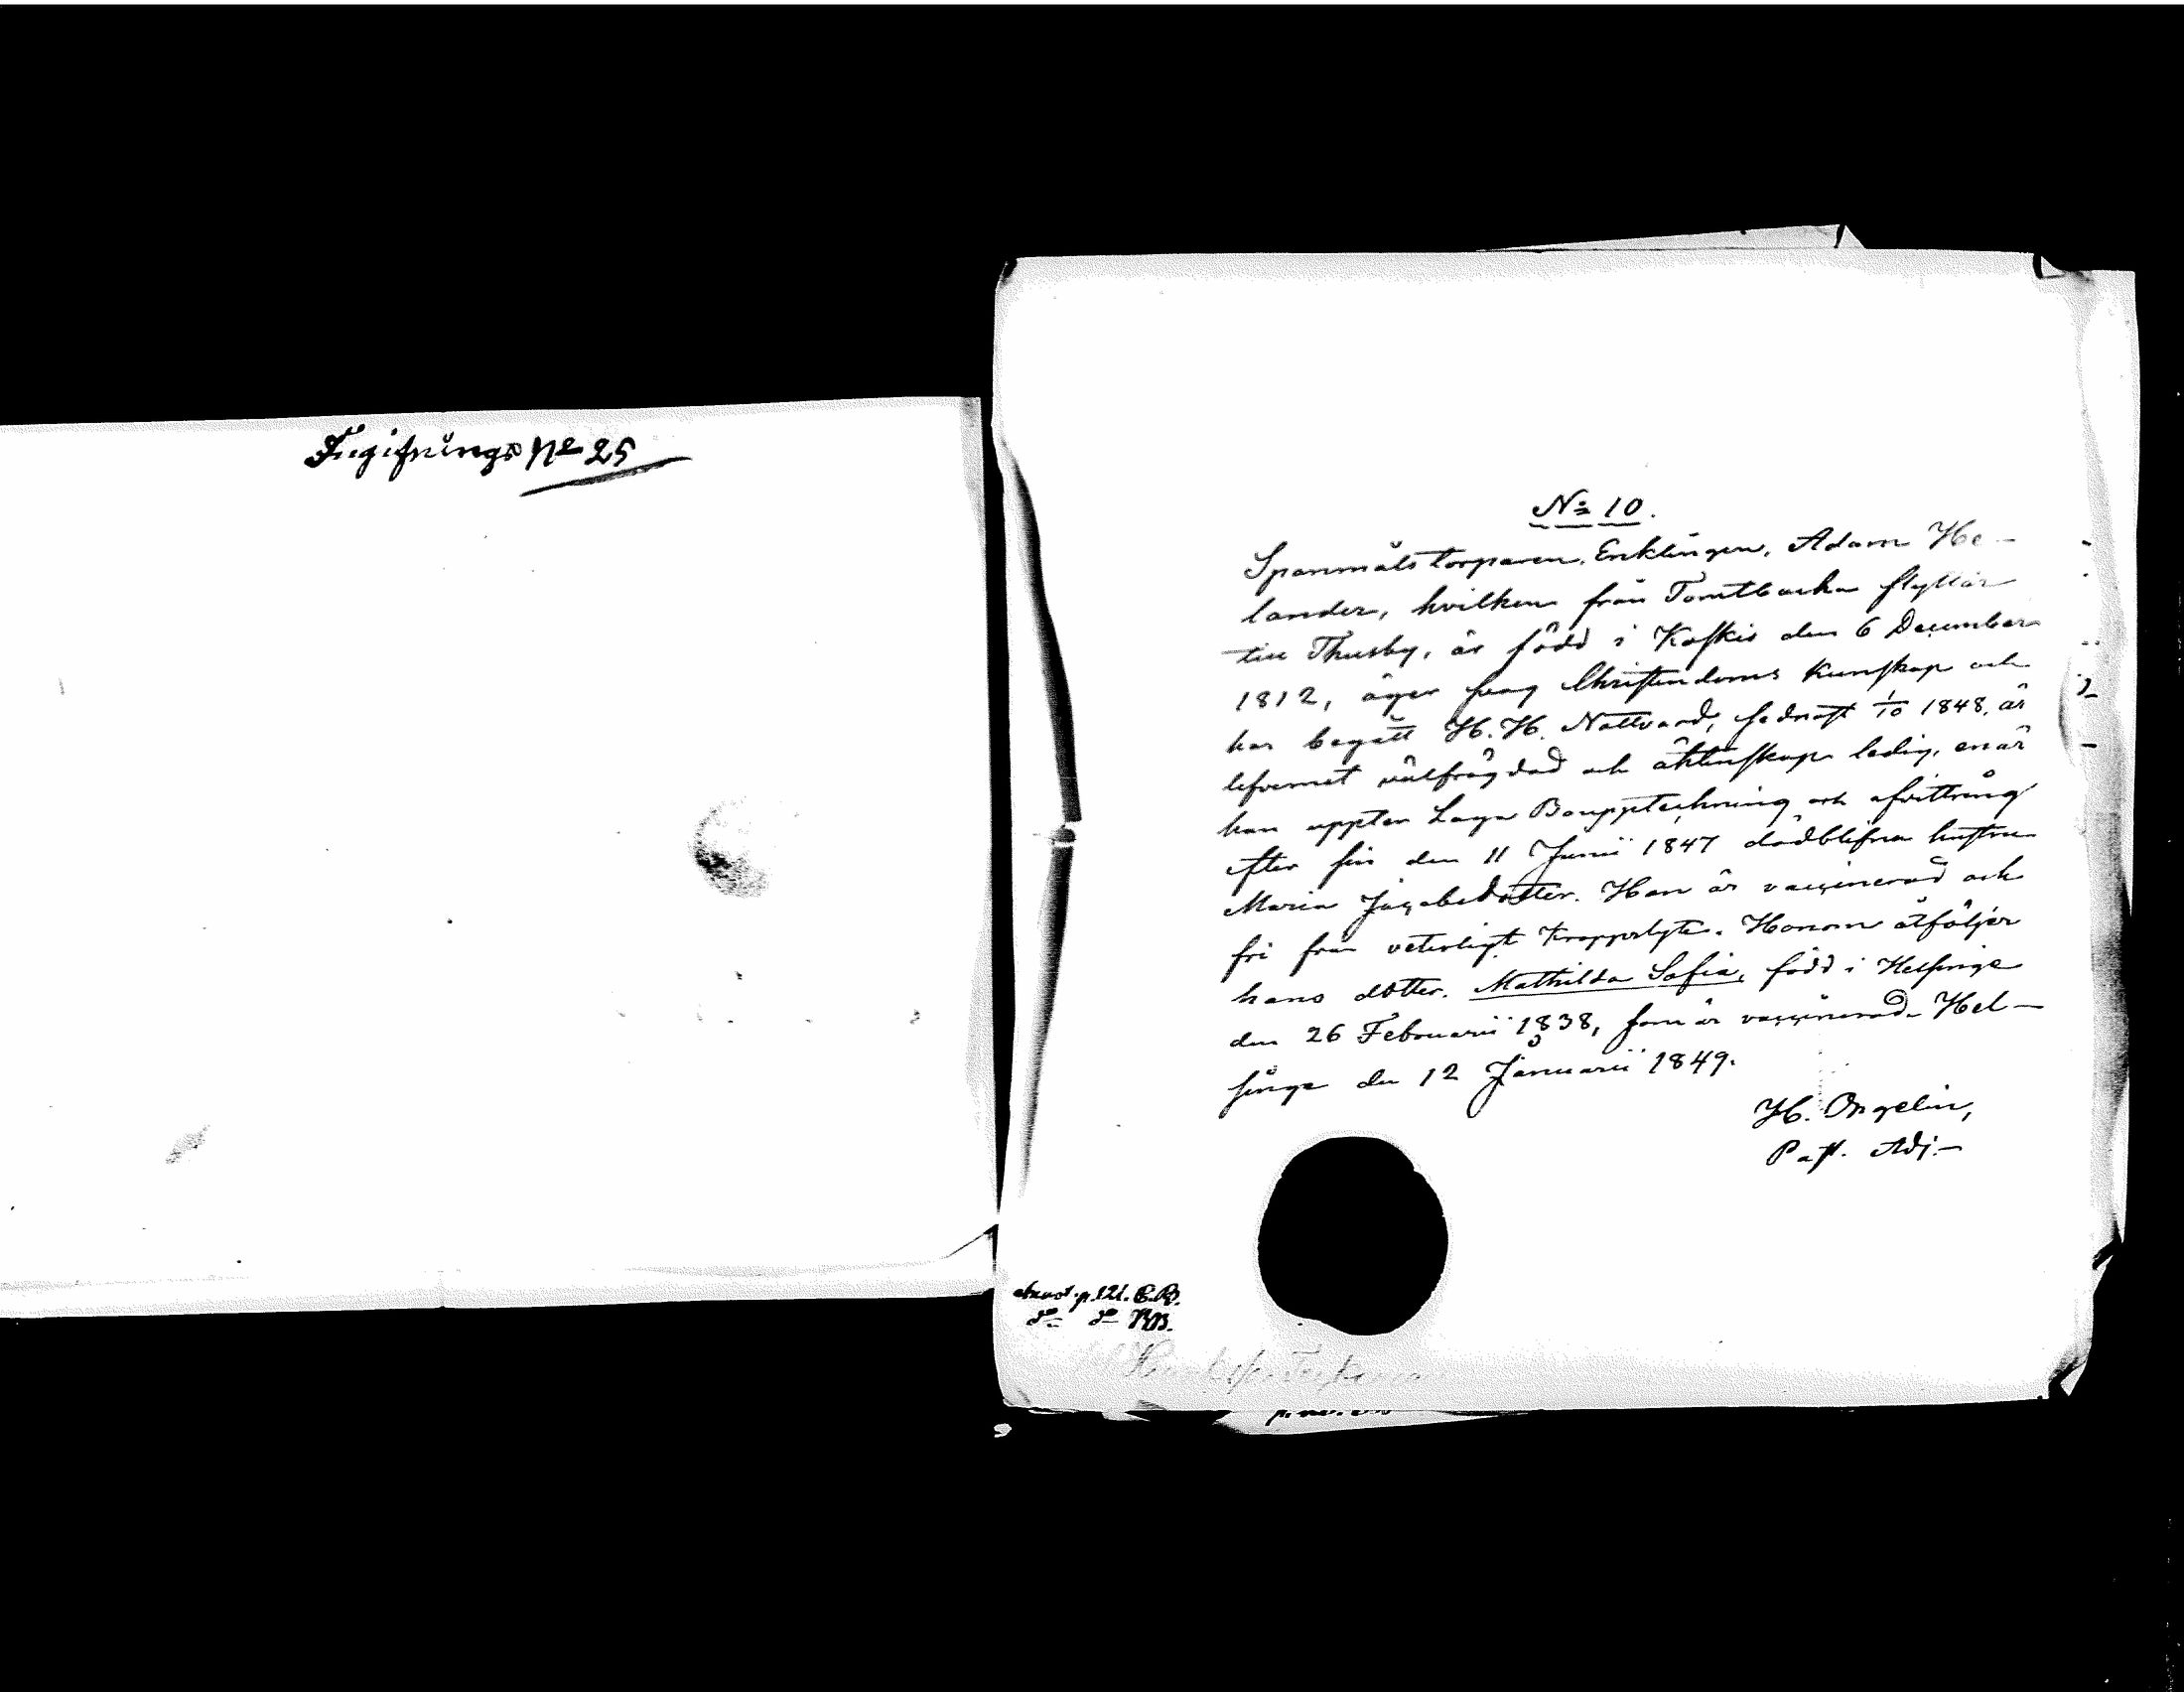 Ingifnings No 25
No 10.
Spanmålstorparen, Enklingen, Adam He-
lander, hvilken från Tomtbacka flyttar
till Thusby, är född i Koskis den 6 December
1812, äger svag Christendoms kunskap och
har begått H. H. Nattvard, sednast 1/10 1848, är
lefvernet välfrägdad och äktenskaps ledig, enär
han uppter Laga Bouppteckning och afvittring
efter sin den 11 Junii 1847 dödblifna hustru
Maria Jacobsdotter. Han är vaccinerad och
fri från veterligt kroppslyte. Honom åtföljer
hans dotter. Mathilda Sofia, född i Helsinge
den 26 Februarii 1838, som är vaccinerad. Hel-
singe den 12 Januarii 1849.
H.
Past. Adj.
annot. p. 121. C.B.
do do KB.